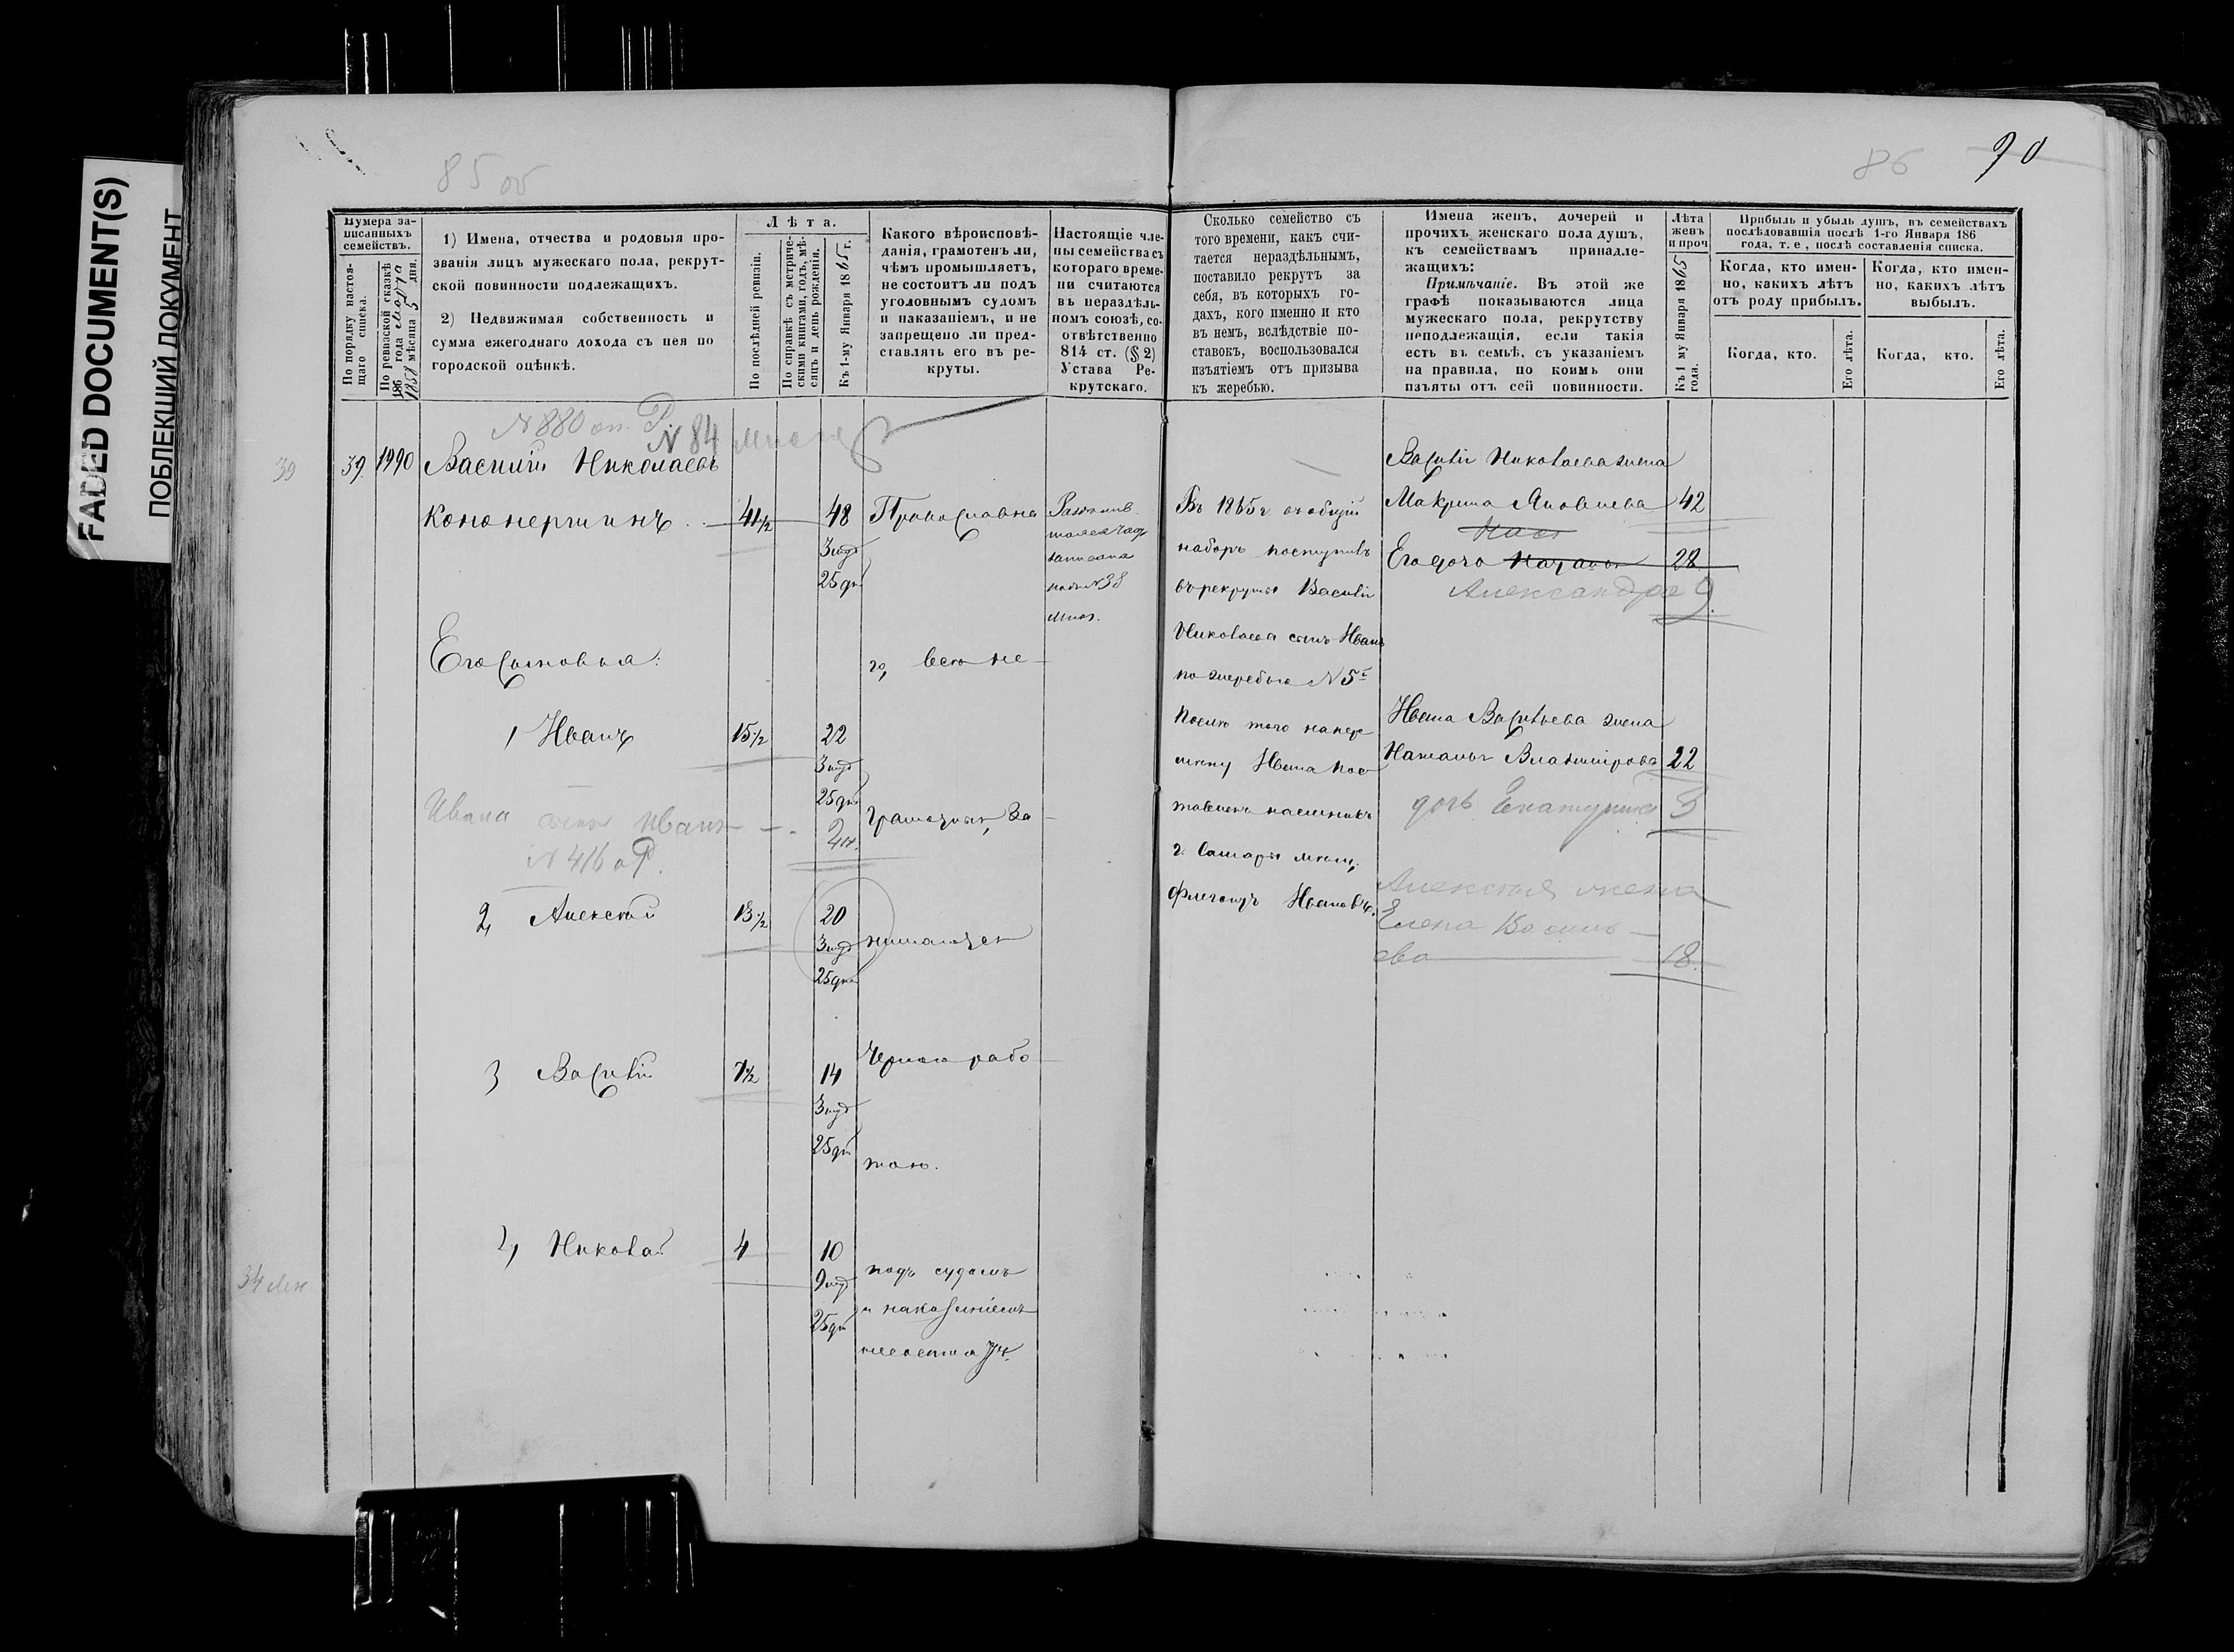 FADED DOCUMENT(S)
ПОБЛЕКШИЙ ДОКУМЕНТ
85 об
86
90
Нумера за-
писанныхъ
семействъ.
По порядку настоя-
щаго списка.
По ревизской сказкѣ
186 года марта
1858 мѣсяца 5 дня.
1) Имена, отчества и родовыя про-
званія лицъ мужескаго пола, рекрут-
ской повинности подлежащихъ.
2) Недвижимая собственность и
сумма ежегоднаго дохода съ нея по
городской оцѣнкѣ.
Лѣта.
По послѣдней ревизіи.
По справкѣ съ метриче-
скими книгами, годъ, мѣ-
сяцъ и день рожденія.
Къ 1-му Января 1865 г.
Какого вѣроисповѣ-
данія, грамотенъ ли,
чѣмъ промышляетъ,
не состоитъ ли подъ
уголовнымъ судомъ
и наказаніемъ, и не
запрещено ли пред-
ставлять его въ ре-
круты.
Настоящіе чле-
ны семейства съ
котораго време-
ни считаются
въ нераздѣль-
номъ союзѣ, со-
отвѣтственно
814 ст. (§ 2)
Устава Ре-
крутскаго.
Сколько семейство съ
того времени, какъ счи-
тается нераздѣльнымъ,
поставило рекрутъ за
себя, въ которыхъ го-
дахъ, кого именно и кто
въ немъ, вслѣдствіе по-
ставокъ, воспользовался
изъятіемъ отъ призыва
къ жеребью.
Имена женъ, дочерей и
прочихъ женскаго пола душъ,
къ семействамъ принадле-
жащихъ:
Примѣчаніе. Въ этой же
графѣ показываются лица
мужескаго пола, рекрутству
неподлежащія, если такія
есть въ семьѣ, съ указаніемъ
на правила, по коимъ они
изъяты отъ сей повинности.
Лѣта
женъ
и проч
Къ 1 му Января 1865
года.
Прибыль и убыль душъ, въ семействахъ
послѣдовавшія послѣ 1-го Января 186
года, т. е, послѣ составленія списка.
Когда, кто имен-
но, какихъ лѣтъ
отъ роду прибылъ.
Когда, кто имен-
но, какихъ лѣтъ
выбылъ.
Когда, кто.
Его лѣта.
Когда, кто.
Его лѣта.
N 880 оп. Р.
N 84
39
39. 1990 Василій Николаевъ
41½ 48 Православна
3 мѣс
25 дн
Его сыновья:
го, всѣ не
1 Иванъ 15½ 22
3 мѣс
25 дн
Ивана сынъ Иванъ 2 м.
грамотны, за
N 416 о Р.
2, Алексѣй 13½ 20
3 мѣс
25 дн
нимаются
3 Василій 7½ 14
3 мѣс
25 дн
Черною рабо
тою.
4, Николай 4 10
9 мѣс
25 дн
подъ судомъ
и наказаніемъ
34
записана
подъ N 38
Въ 1865 г. въ общій
наборъ поступилъ
въ рекруты Василія
Николаева сынъ Иванъ
по жеребью N 5
Послѣ того на пере
мѣну Ивана пос
тавленъ наемникъ
г. Самары мѣщ.
Ивановъ.
Василія Николаева жена
Макрина Яковлева 42
Его дочь 28
Александра 9
Ивана Васильева жена
Наталья Владимірова 22
дочь Екатерина 3
Алексѣя жена
Елена Василь
ева 18.